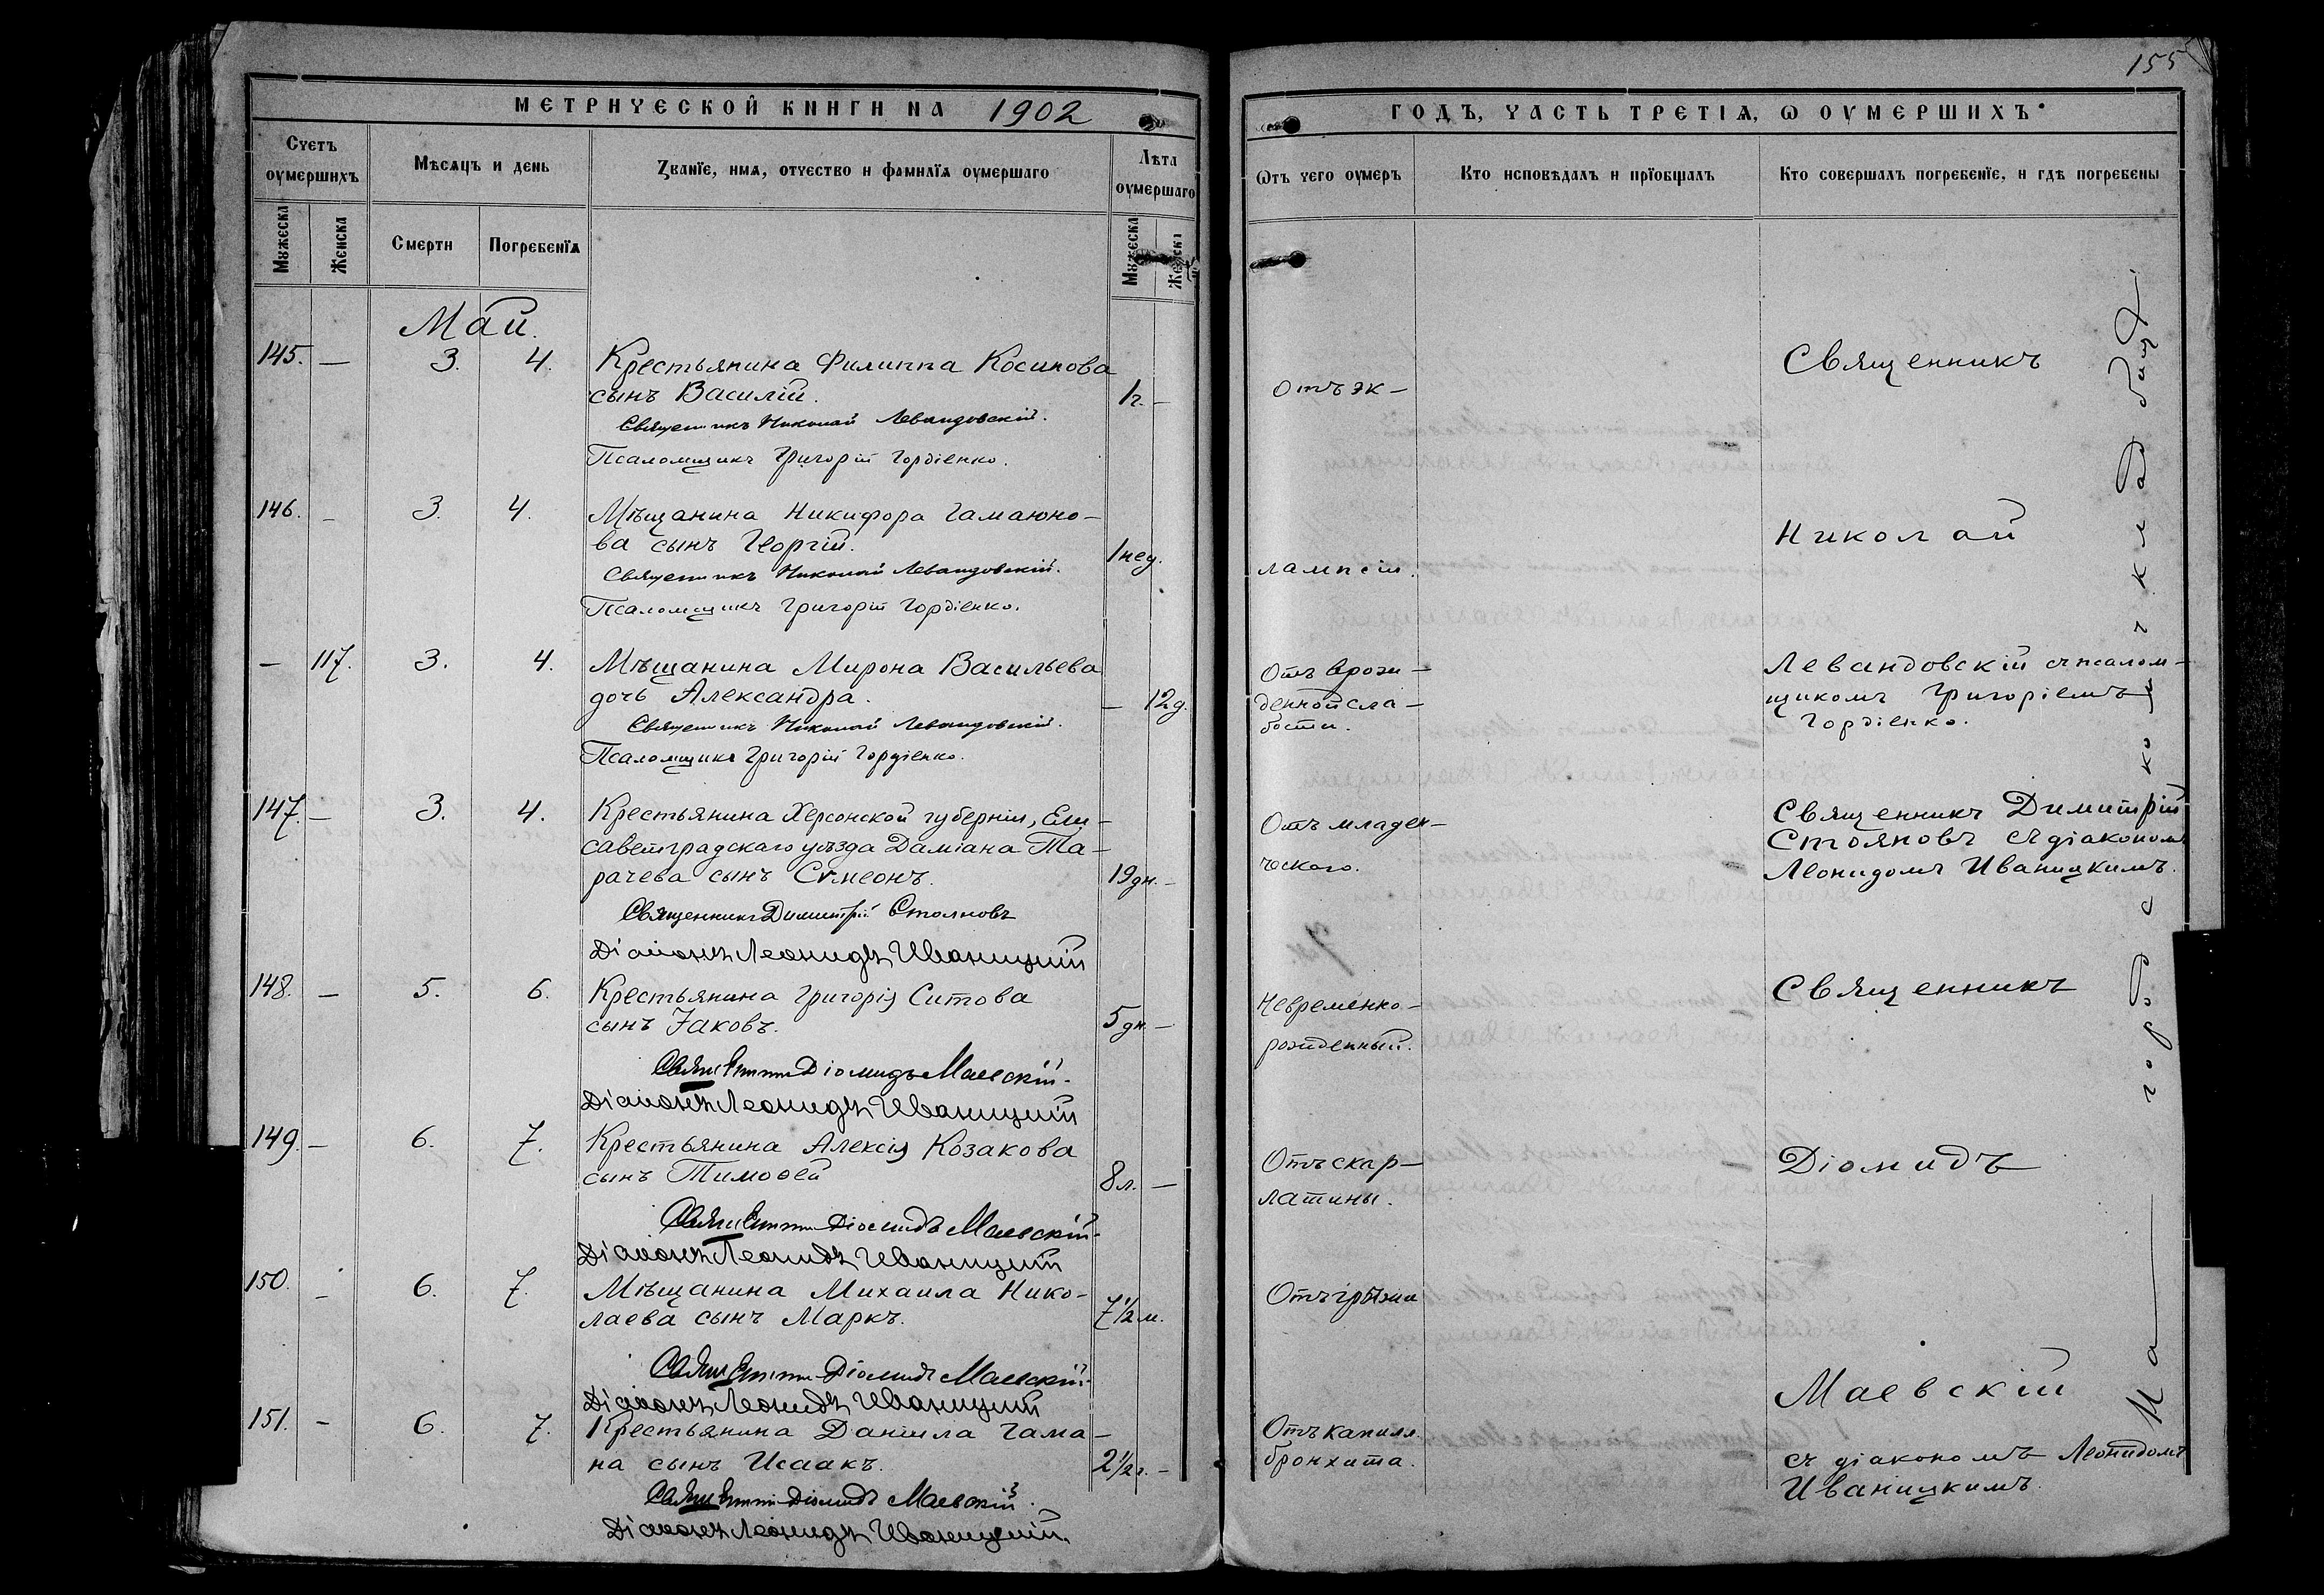 155
МЕТРИЧЕСКОЙ КНИГИ НА 1902
ГОДЪ, ЧАСТЬ ТРЕТІѦ, Ѡ ОУМЕРШИХЪ
Счетъ оумершихъ
Мѣсѧцъ и день
Званїе, имѧ, отчество и фамилїѧ оумершаго
Лѣта оумершаго
Ѿтъ чего оумеръ
Кто исповѣдалъ и прїобщалъ
Кто совершалъ погребенїе, и гдѣ погребены
Мужеска
Женска
Смерти
Погребенїѧ
Мужеска
Женска
Май.
145. — 3. 4. Крестьянина Филиппа Косинова
сынъ Василій. 1г. —
Священникъ Николай Левандовскій.
Псаломщикъ Григорій Гордіенко.
Отъ эк-
Священникъ
146. — 3. 4. Мѣщанина Никифора Гамаюно-
ва сынъ Георгій. 1 нед.
Священникъ Николай Левандовскій.
Псаломщикъ Григорій Гордіенко.
лампсіи.
Николай
— 117. 3. 4. Мѣщанина Мирона Васильева
дочь Александра. — 12д.
Священникъ Николай Левандовскій.
Псаломщикъ Григорій Гордіенко.
Отъ врож-
денной сла-
бости.
Левандовскій съ псалом-
щикомъ Григоріемъ
Гордіенко.
147. — 3. 4. Крестьянина Херсонской губерніи, Ели-
саветградскаго уѣзда Даміана Та-
рачева сынъ Сѵмеонъ. 19дн. —
Священникъ Димитрій Стояновъ
Діаконъ Леонидъ Иваницкій
Отъ младен-
ческаго.
Священникъ Димитрій
Стояновъ съ діакономъ
Леонидомъ Иваницкимъ.
148. — 5. 6. Крестьянина Григорія Ситова
сынъ Іаковъ. 5дн. —
Священникъ Діомидъ Маевскій.
Діаконъ Леонидъ Иваницкій
Невременно-
рожденный.
Священникъ
149. — 6. 7. Крестьянина Алексія Козакова
сынъ Тимоѳей 8л. —
Священникъ Діомидъ Маевскій.
Діаконъ Леонидъ Иваницкій
Отъ скар-
латины.
Діомидъ
150. — 6. 7. Мѣщанина Михаила Нико-
лаева сынъ Маркъ. 7½м.
Священникъ Діомидъ Маевскій.
Діаконъ Леонидъ Иваницкій
Отъ грыжи
Маевскій
151. — 6. 7. Крестьянина Даніила Гама-
на сынъ Исаакъ. 2½г. —
Священникъ Діомидъ Маевскій.
Діаконъ Леонидъ Иваницкій.
Отъ капилл.
бронхита.
съ діакономъ Леонидомъ
Иваницкимъ.
На городскомъ кладбищѣ